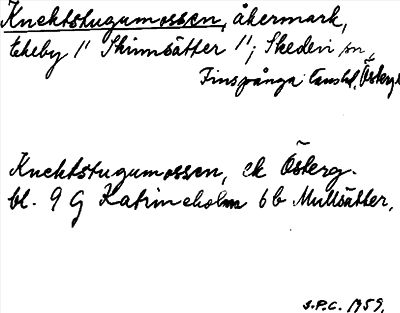 Knektstugumossen, åkermark,
Ekeby 1/1 Skinnsätter 1/1; Skedevi sn,
Finspånga länshd. Österg.
Knektstugumossen, ek Österg.
bl. 9 G Katrineholm 6b Mullsätter.
S.P.C. 1959.